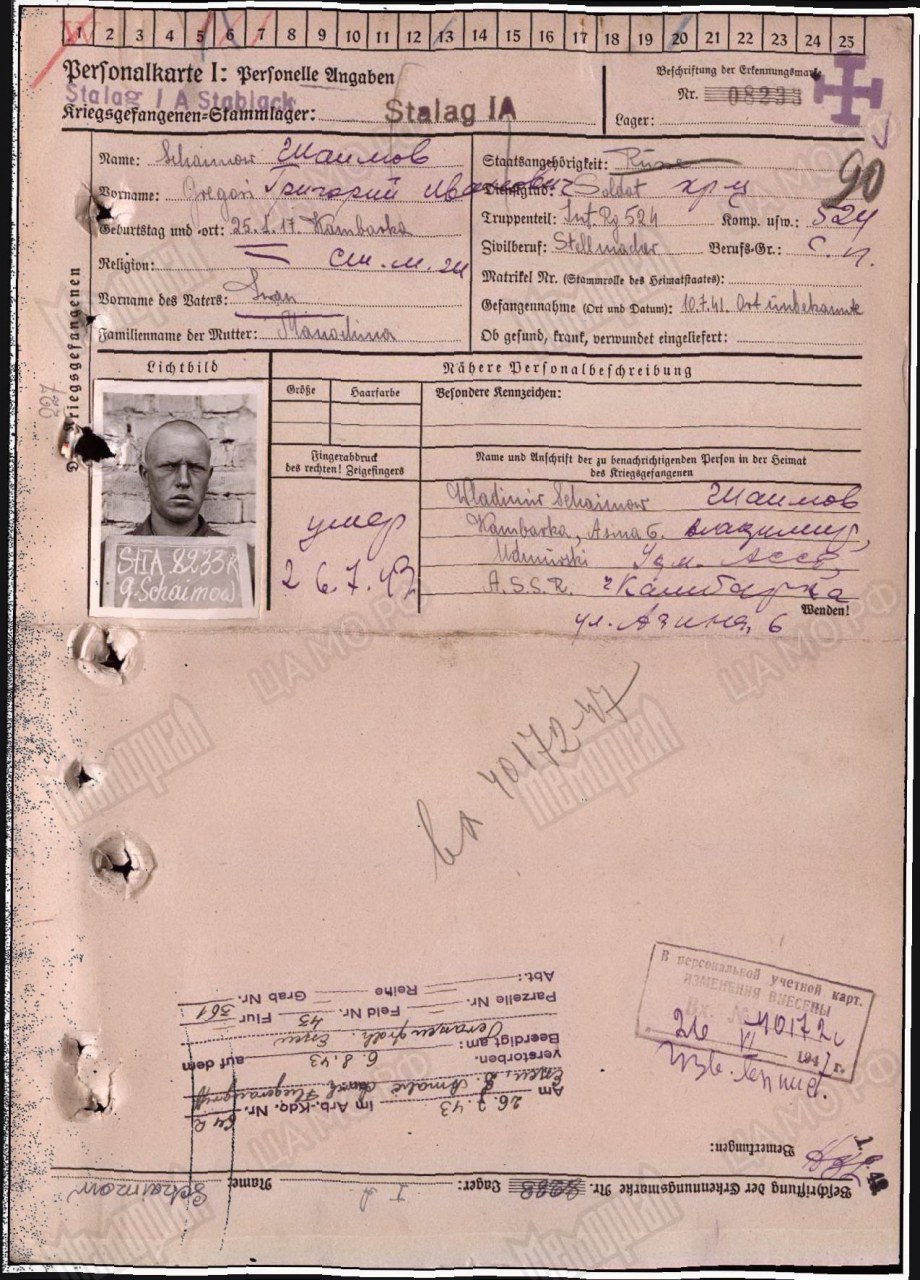 1 2 3 4 5 6 7 8 9 10 11 12 13 14 15 16 17 18 19 20 21 22 23 24 25
Personalkarte I: Personelle Angaben
Stalag I A Stablack
Kriegsgefangenen-Stammlager: Stalag IA
Beschriftung der Erkennungsmarke
Nr. 08233
Lager:
Name: Schaimow Шаимов
Vorname: Gregori Григорий Иванович
Geburtstag und -ort: 25. 17. Kambarka
Religion:
Vorname des Vaters: Iwan
Familienname der Mutter:
Staatsangehörigkeit: Russe
90
Dienstgrad: Soldat кр-ц
Truppenteil: Inf. Rg 524 Komp. usw.: 524
Zivilberuf: Stellmacher Berufs-Gr.: с. п.
Matrikel Nr. (Stammrolle des Heimatstaates):
Gefangennahme (Ort und Datum): 10.7.41. Ort unbekannt
Ob gesund, krank, verwundet eingeliefert:
Kriegsgefangenen
Lichtbild
Nähere Personalbeschreibung
Größe Haarfarbe Besondere Kennzeichen:
Fingerabdruck
des rechten! Zeigefingers
Name und Anschrift der zu benachrichtigenden Person in der Heimat
des Kriegsgefangenen
Wladimir Schaimow Шаимов
Kambarka, Asina 6. Владимир,
Udmurski Удм. АССР,
A.S.S.R. г Камбарка
Wenden!
ул. Азина, 6
умер
26.7.43
StIA 8233
G. Schaimow
вх 40172-47
В персональной учетной карт.
ИЗМЕНЕНИЯ ВНЕСЕНЫ
Вх. № 40172
26 VI 1947 г.
Am 26.7.43 im Arb.-Kdo. Nr. 642
verstorben.
Beerdigt am: 6.8.43 auf dem
Feld Nr. 43 Flur 361
Parzelle Nr. Reihe Grab Nr.
Abt.:
Bemerkungen:
Beschriftung der Erkennungsmarke Nr. Lager: I A Name: Schaimow
Мемориал
ЦАМО РФ